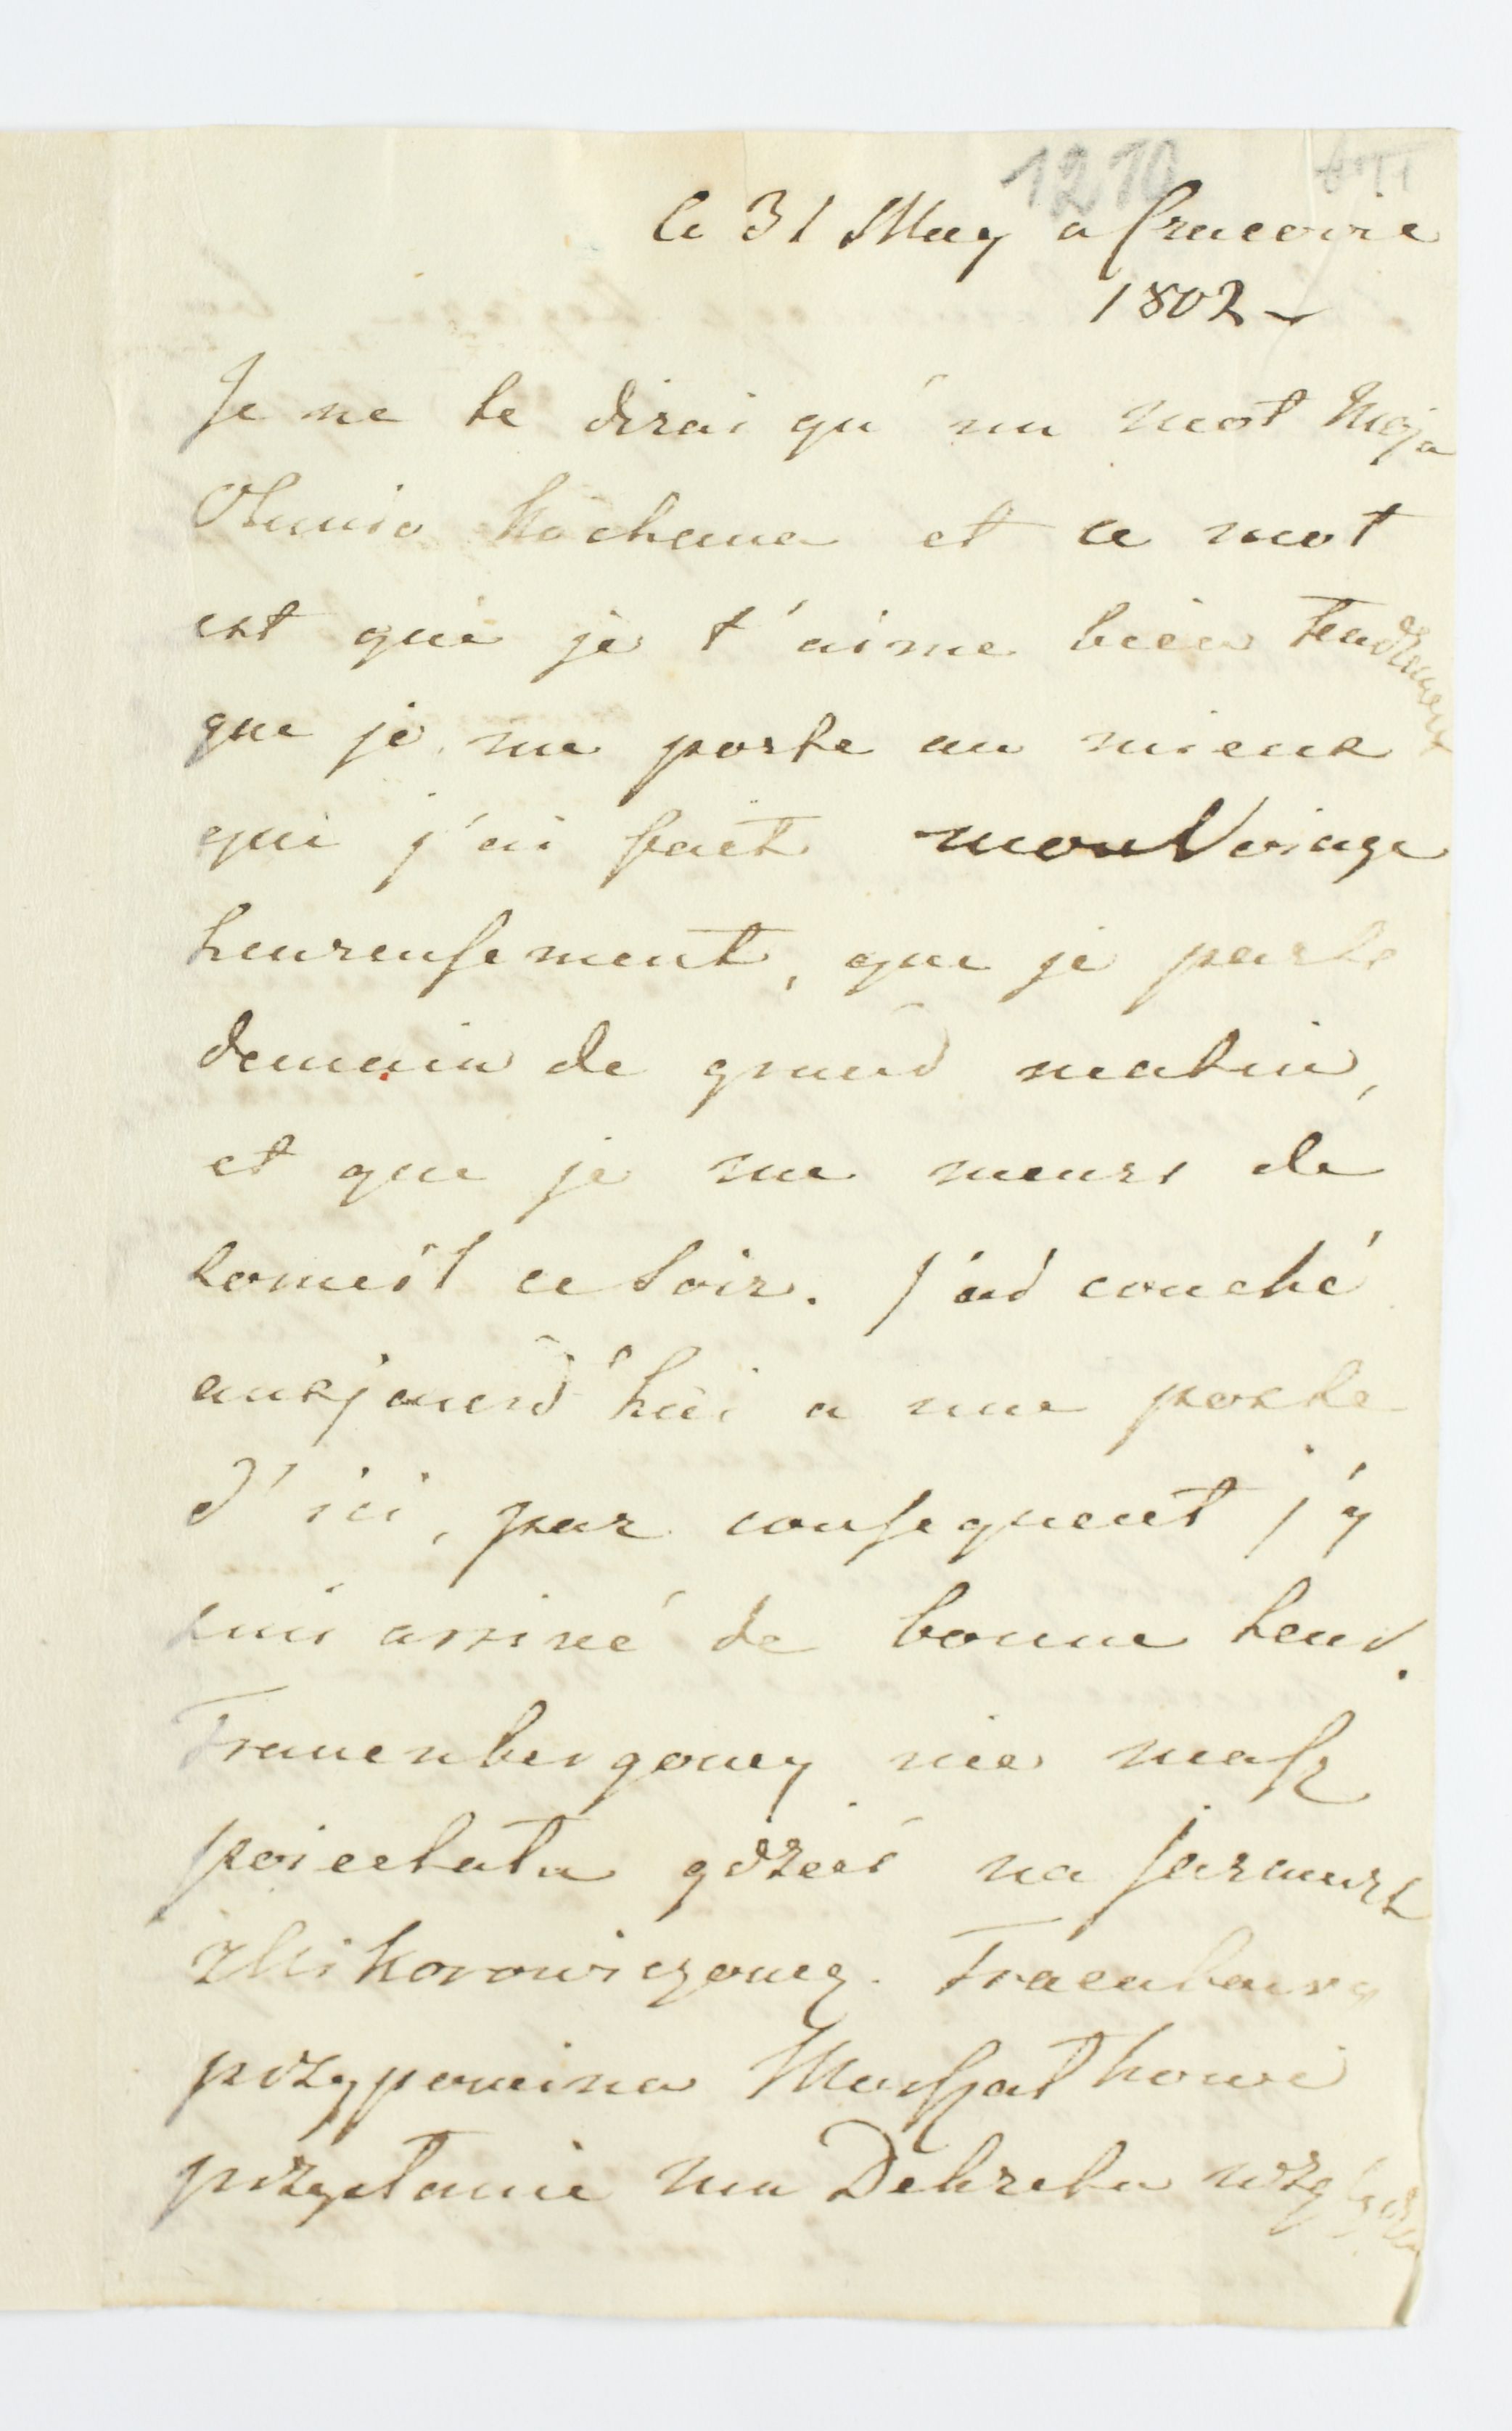 1210
le 31 May a Cracovie
1802
Je ne te dirai qu'un mot Moja
Olunio Kochana et ce mot
est que je t'aime bien tendrement
que je me porte au mieux
que j'ai fait mon Voiage
heureusement, que je parte
demain de grand matin,
et que je me meurs de
someil ce soir. J'ai couché
auxjourd'hui a une poste
d'ici, par consequent j'y
suis arrivé de bonne heur.
Frauenbergowey nie masz
poiechała gdzieś na Jarmark
z Nikorowiczową. Frauenberg
przypomina Marszałkowi
przysłanie mu Dekretu